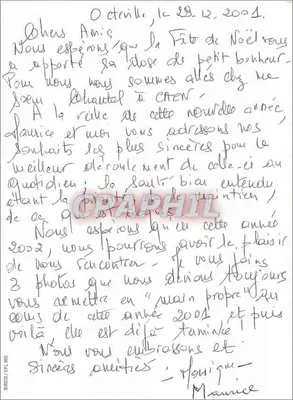 Octeville, le 28.12.2001.
Chers Amis
Nous espérons que la Fête de Noël vous
a apporté sa dose de petit bonheur.
Pour nous nous sommes allés chez ma
sœur Chantal à CAEN.
A la veille de cette nouvelle année,
Maurice et moi vous adressons nos
souhaits les plus sincères pour le
meilleur déroulement de celle-ci au
quotidien : la santé bien entendu
étant la
de ce
CPAPHIL
Nous espérons qu'en cette année
2002, nous pourrons avoir le plaisir
de vous rencontrer. Je vous joins
3 photos que nous devions toujours
vous remettre en "main propre" au
cours de cette année 2001 et puis
voilà elle est déjà terminée !
Nous vous embrassons et
Sincères amitiés
Monique
Maurice